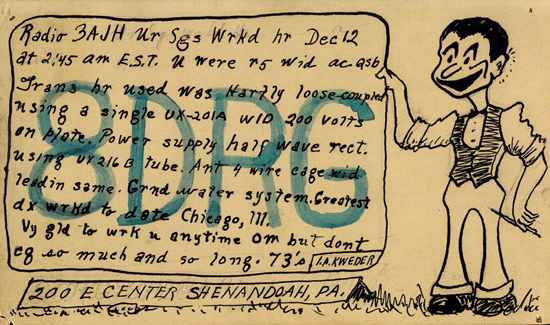 Radio 3AJH Ur Sgs Wrkd hr Dec 12
at 2:45 am E.S.T. U were r5 wid ac qsb
Trans hr used was Hartly loose-coupled
using a single UX-201A WID 200 volts
on plate. Power supply half wave rect.
using UX 216 B tube. Ant 4 wire cage wid
leadin same. Grnd water system. Greatest
dx wrkd to date Chicago, Ill.
Vy gld to wrk u anytime Om but dont
cq so much and so long. 73's
I.A. KWEDER
8DRG
200 E CENTER SHENANDOAH, PA.